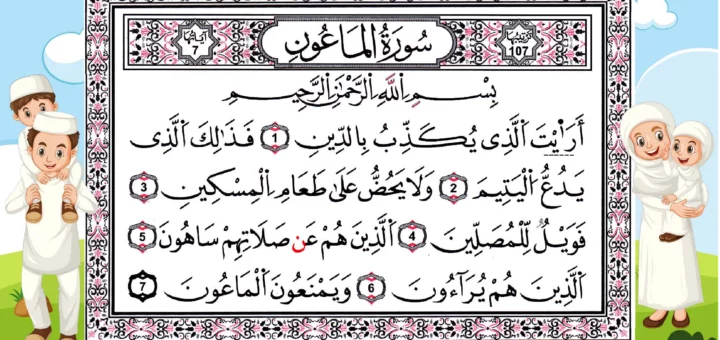 ترتيبها 107 سُورَةُ الْمَاعُونِ آياتها 7
بِسْمِ اللَّهِ الرَّحْمَٰنِ الرَّحِيمِ
أَرَأَيْتَ ٱلَّذِى يُكَذِّبُ بِالدِّينِ 1 فَذَٰلِكَ ٱلَّذِى
يَدُعُّ ٱلْيَتِيمَ 2 وَلَا يَحُضُّ عَلَىٰ طَعَامِ ٱلْمِسْكِينِ 3
فَوَيْلٌ لِّلْمُصَلِّينَ 4 ٱلَّذِينَ هُمْ عَن صَلَاتِهِمْ سَاهُونَ 5
ٱلَّذِينَ هُمْ يُرَآءُونَ 6 وَيَمْنَعُونَ ٱلْمَاعُونَ 7